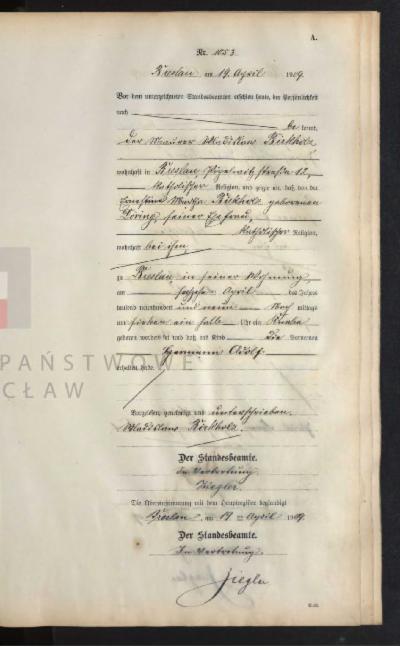 A.
Nr. 1053
Breslau am 19. April 1909.
Vor dem unterzeichneten Standesbeamten erschien heute, der Persönlichkeit
nach
be kannt,
der Maurer Wladislaus Birkholz
wohnhaft in Breslau,
katholischer Religion, und zeigte an, daß von der
Ernestine Martha Birkholz geborenen
Döring, seiner Ehefrau,
katholischer Religion,
wohnhaft bei ihm,
zu Breslau in seiner Wohnung,
am April des Jahres
tausend neunhundert und neun Nach mittags
um sieben ein halb Uhr ein Knabe
geboren worden sei und daß das Kind die Vornamen
Hermann Adolf
erhalten habe.
PAŃSTWOWE
CŁAW
Vorgelesen, genehmigt und unterschrieben.
Wladislaus Birkholz.
Der Standesbeamte.
In Vertretung.
Ziegler.
Die Übereinstimmung mit dem Hauptregister beglaubigt
Breslau, am 19. April 1909.
Der Standesbeamte.
In Vertretung.
Ziegler